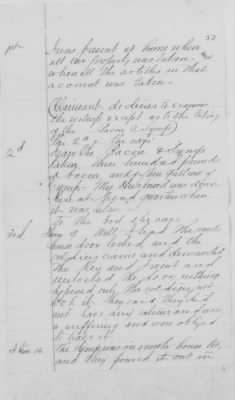 52
1st I was present at home when
all the property was taken
when all the articles in that
account was taken.
(Claimant declines to examine
the witness except as to the taking
of the Bacon & Syrup)
2d
Bacon & Syrup
taken, three hundred pounds
of bacon, and ten gallons of
Syrup. My Husband was down
here at head quarters when
it was taken.
To the 3rd she says
3rd I had the smoke
house door locked and the
soldiers came and demanded
the Key and I went and
unlocked the door, nothing
happened only the soldiers just
took it, they said they did
not have any rations and were
a suffering and were obliged
to have it.
The syrup was in smoke house too,
and they poured it out in